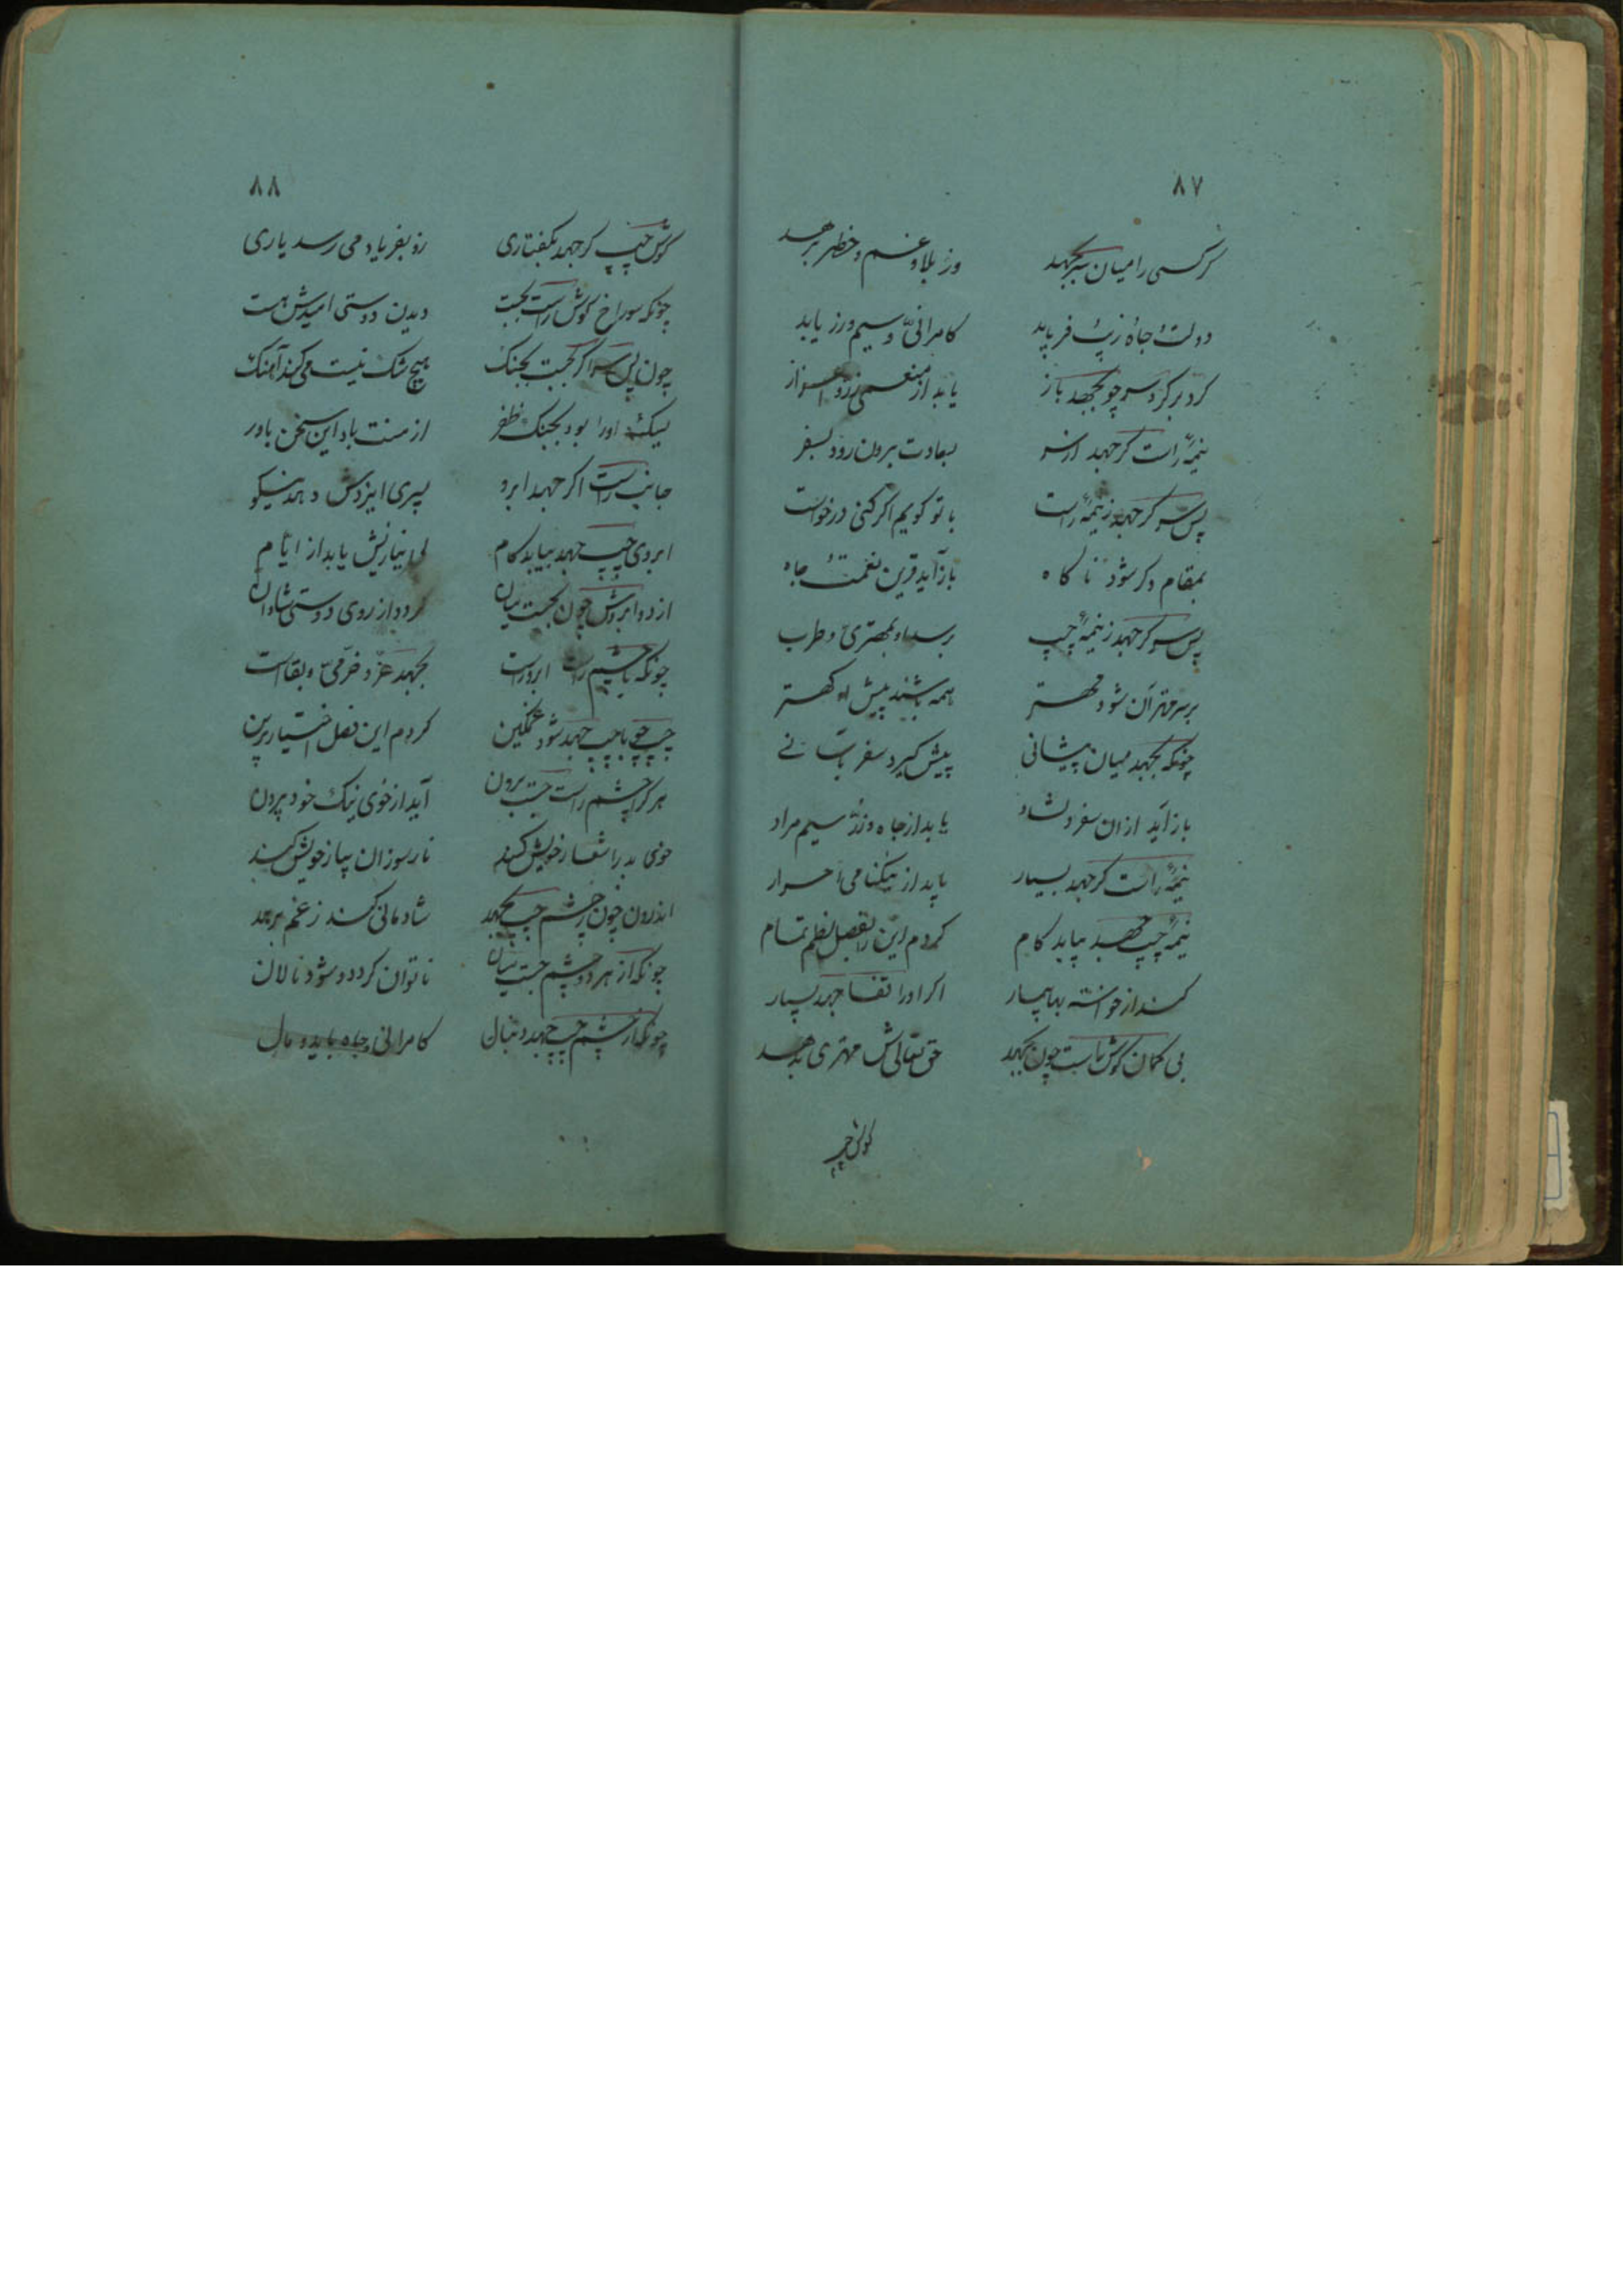 ۸۷
گر کسی را میان سر بجهد وز بلا و غم و خطر برهد
دولت و جاه و زیب و فر یابد کامرانی و سیم و زر یابد
کرد بر کرد سر چو بجهد باز یابد از منعمی زر و
نیمهٔ راست کر جهد از سر بسعادت برون رود بسفر
پس سر کر جهد ز نیمهٔ راست با تو کویم اکر کنی درخواست
بمقام دکر شود ناکاه بازآید قرین نعمت و جاه
پس سر کر جهد ز نیمهٔ چپ برسد او بمهتری و طرب
بر سر مهتران شود مهتر همه باشند پیش او کهتر
چونکه بجهد میان پیشانی پیش کیرد سفر
باز آید ازان سفر دلشاد یابد از جاه و زر و سیم مراد
نیمهٔ راست کر جهد بسیار یابد از نیکنامی احرار
نیمهٔ چپ جهد بیابد کام کردم این را بفصل نظم تمام
کند از خواسته اکر او را قفا جهد بسیار
بی کمان کوش راست چون بجهد حق تعالیش مهتری بدهد
کوش چپ
۸۸
کوش چپ کر جهد بکفتاری زو بفریاد می رسد یاری
چونکه سوراخ کوش راست بجست دیدن دوستی امیدش هست
چون پس سر اکر بجست بجنک هیچ شک نیست می کند آهنک
لیکن اورا بود بجنک ظفر از منت باد این سخن باور
جانب راست اکر جهد ابرو پسری ایزدش دهد نیکو
ابروی چپ جهد بیابد کام بی نیازیش یابد از ایام
از دو ابروش چون بجست میان کردد از روی دوستی شادان
چونکه با چشم راست ابرو راست بجهد عز و خرمی و بقاست
چپ چو با چپ جهد شود غمکین کردم این فصل اختیار برین
هر کرا چشم راست جست برون آید از خوی نیک خود بیرون
خوی بد را شعار خویش کند نار سوزان بیاز خویش کند
اندرون چون ز چشم چپ بجهد شادمانی کند ز غم برهد
چونکه از هر دو چشم جست میان ناتوان کردد و شود نالان
چونکه از چشم چپ جهد دنبال کامرانی و جاه یابد و مال